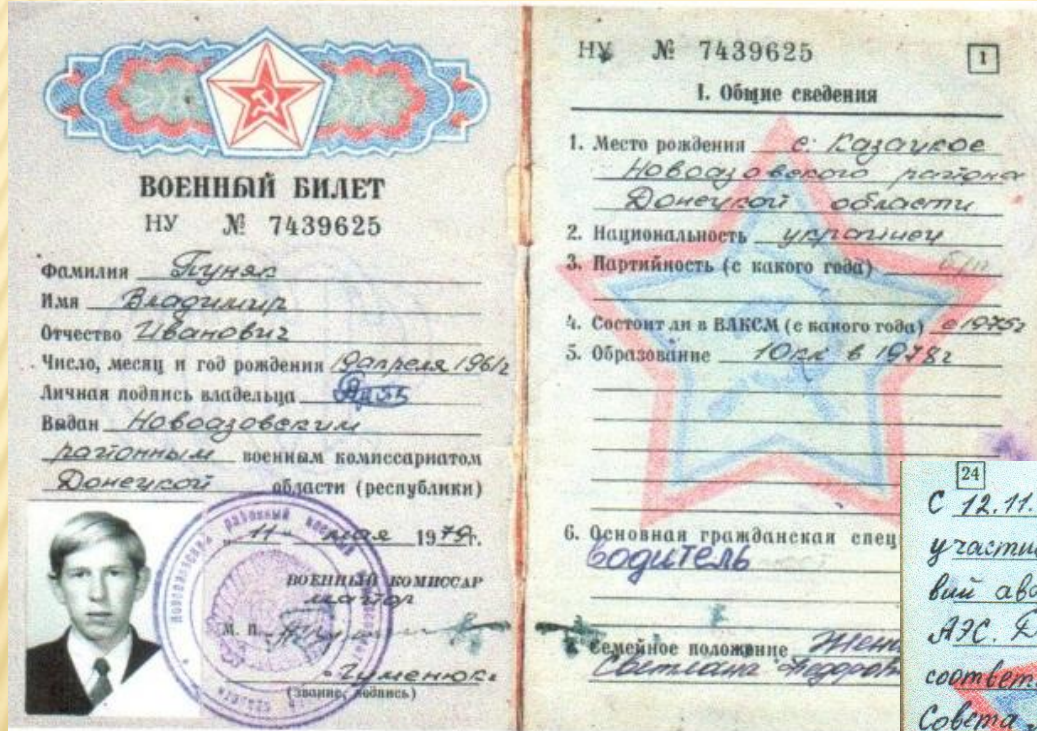 ВОЕННЫЙ БИЛЕТ
НУ № 7439625
Фамилия
Имя Владимир
Отчество Иванович
Число, месяц и год рождения 19 апреля 1961г
Личная подпись владельца
Выдан Новоазовским
районным военным комиссариатом
Донецкой области (республики)
11 мая 1979г.
ВОЕННЫЙ КОМИССАР
майтор
М. П.
Гуменюк
(звание, подпись)
НУ № 7439625
1
I. Общие сведения
1. Место рождения с. Казацкое
Новоазовского района
Донецкой области
2. Национальность украинец
3. Партийность (с какого года) б/п
4. Состоит ли в ВЛКСМ (с какого года) с 1975г
5. Образование 10кл в 1978г
6. Основная гражданская спец
водитель
Семейное положение Жена
Светлана Федоров
24
С 12.11.
участи
вий ава
АЭС.
соответ
Совета